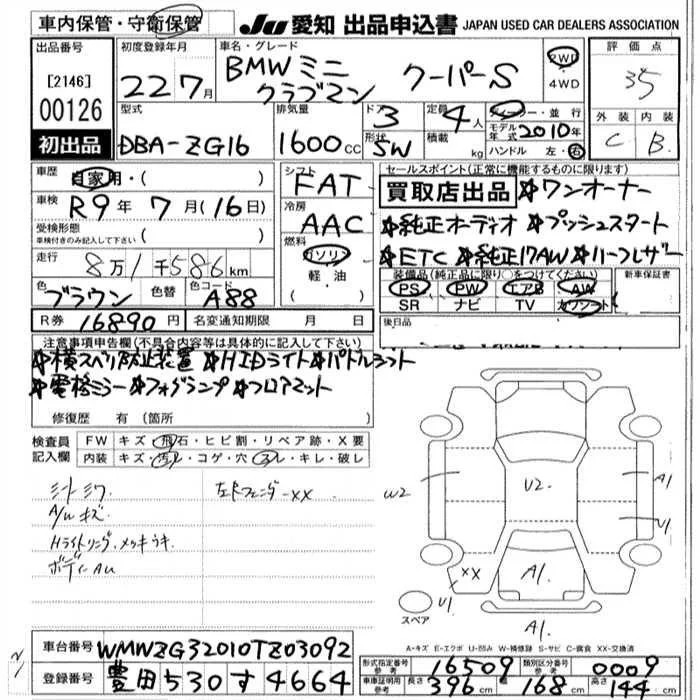 車内保管・守衛保管
JU 愛知 出品申込書 JAPAN USED CAR DEALERS ASSOCIATION
出品番号
[2146]
00126
初出品
初度登録年月
22 7月
車名・グレード
BMWミニ クーパーS
クラブマン
2WD
4WD
評価点
35
外装 内装
C B
型式
DBA-ZG16
排気量
1600cc
ドア
3
形状
SW
定員
4人
積載
kg
ディーラー・並行
モデル年式 2010年
ハンドル 左・右
車歴
自家用・( )
車検
R9年 7月(16日)
受検形態
車検付きのみ記入して下さい ( )
走行
8万1千586km
色
ブラウン
色替
色コード
A88
R券 16890円
名変通知期限 月 日
シフト
FAT
冷房
AAC
燃料
ガソリン
軽・油
( )
セールスポイント(正常に機能するものに限ります)
買取店出品 *ワンオーナー
*純正オーディオ *プッシュスタート
*ETC *純正17AW *ハーフレザー
装備品(純正品に限り○をつけてください)
PS PW エアB AW
SR ナビ TV カワシート
新車保証書
後日品
注意事項申告欄(不具合内容等は具体的に記入して下さい)
*横スベリ防止装置 *HIDライト *パドルシフト
*電格ミラー *フォグランプ *フロアマット
修復歴 有(箇所
検査員記入欄
FW キズ・飛石・ヒビ割・リペア跡・X要
内装 キズ・汚レ・コゲ・穴・スレ・キレ・破レ
シートシワ
A/Wキズ
Hライトリング、メッキウキ
ボディーAU
左Fフェンダー-XX
W2
U2
A1
U1
XX
U1
A1
A1
スペア
A-キズ E-エクボ U-凹み W-補修跡 S-サビ C-腐食 XX-交換済
車台番号 WMWZG32010TZ03092
登録番号 豊田530す4664
形式指定番号 参考 16509
類別区分番号 参考 0009
車庫証明用 参考 長さ 396cm 幅 168cm 高さ 144cm